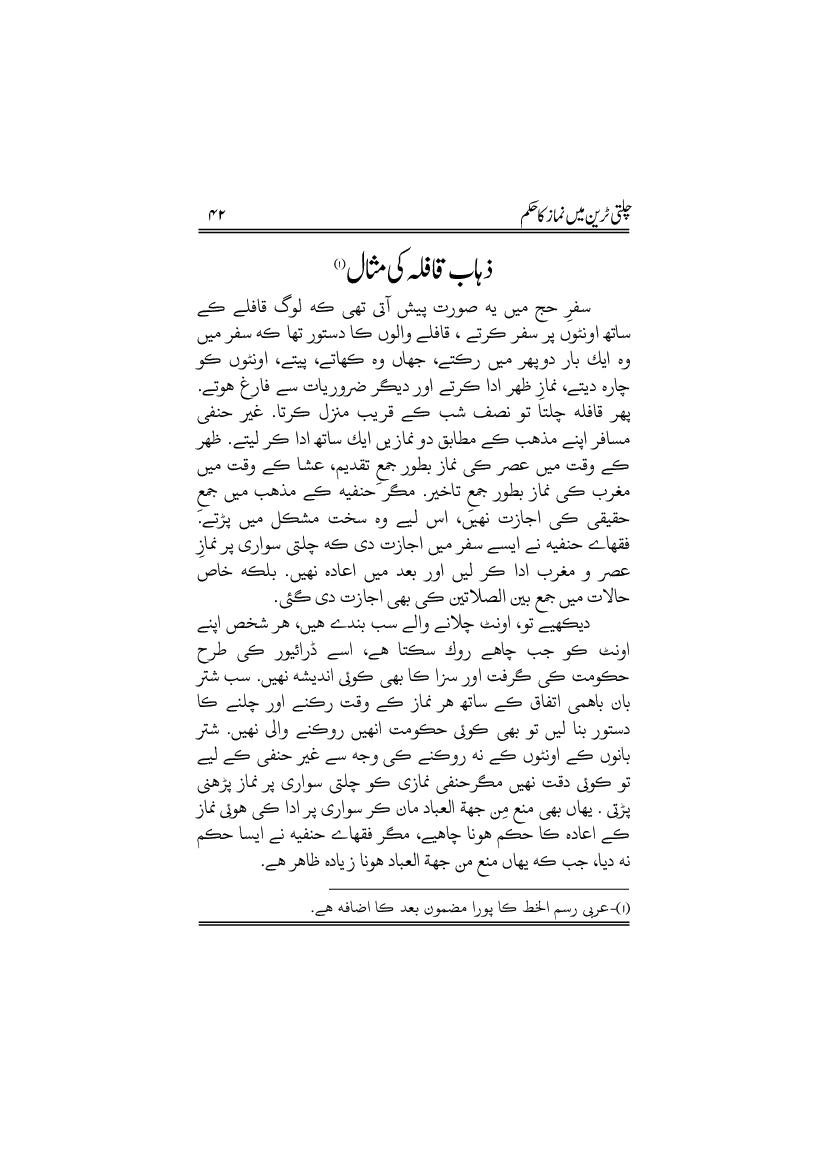 چلتی ٹرین میں نماز کا حکم ۴۲
ذہاب قافلہ کی مثال (۱)
سفرِ حج میں یہ صورت پیش آتی تھی کہ لوگ قافلے کے
ساتھ اونٹوں پر سفر کرتے ، قافلے والوں کا دستور تھا کہ سفر میں
وہ ایك بار دوپہر میں رکتے، جہاں وہ کھاتے، پیتے، اونٹوں کو
چارہ دیتے، نمازِ ظہر ادا کرتے اور دیگر ضروریات سے فارغ ہوتے.
پھر قافلہ چلتا تو نصف شب کے قریب منزل کرتا. غیر حنفی
مسافر اپنے مذہب کے مطابق دو نمازیں ایك ساتھ ادا کر لیتے. ظہر
کے وقت میں عصر کی نماز بطور جمعِ تقدیم، عشا کے وقت میں
مغرب کی نماز بطور جمعِ تاخیر. مگر حنفیہ کے مذہب میں جمعِ
حقیقی کی اجازت نہیں، اس لیے وہ سخت مشکل میں پڑتے.
فقہاے حنفیہ نے ایسے سفر میں اجازت دی کہ چلتی سواری پر نمازِ
عصر و مغرب ادا کر لیں اور بعد میں اعادہ نہیں. بلکہ خاص
حالات میں جمع بین الصلاتین کی بھی اجازت دی گئی.
دیکھیے تو، اونٹ چلانے والے سب بندے ہیں، ہر شخص اپنے
اونٹ کو جب چاہے روك سکتا ہے، اسے ڈرائیور کی طرح
حکومت کی گرفت اور سزا کا بھی کوئی اندیشہ نہیں. سب شتر
بان باہمی اتفاق کے ساتھ ہر نماز کے وقت رکنے اور چلنے کا
دستور بنا لیں تو بھی کوئی حکومت انھیں روکنے والی نہیں. شتر
بانوں کے اونٹوں کے نہ روکنے کی وجہ سے غیر حنفی کے لیے
تو کوئی دقت نہیں مگرحنفی نمازی کو چلتی سواری پر نماز پڑھنی
پڑتی . یہاں بھی منع مِن جهة العباد مان کر سواری پر ادا کی ہوئی نماز
کے اعادہ کا حکم ہونا چاہیے، مگر فقہاے حنفیہ نے ایسا حکم
نہ دیا، جب کہ یہاں منع من جهة العباد ہونا زیادہ ظاہر ہے.
(۱)-عربی رسم الخط کا پورا مضمون بعد کا اضافہ ہے.